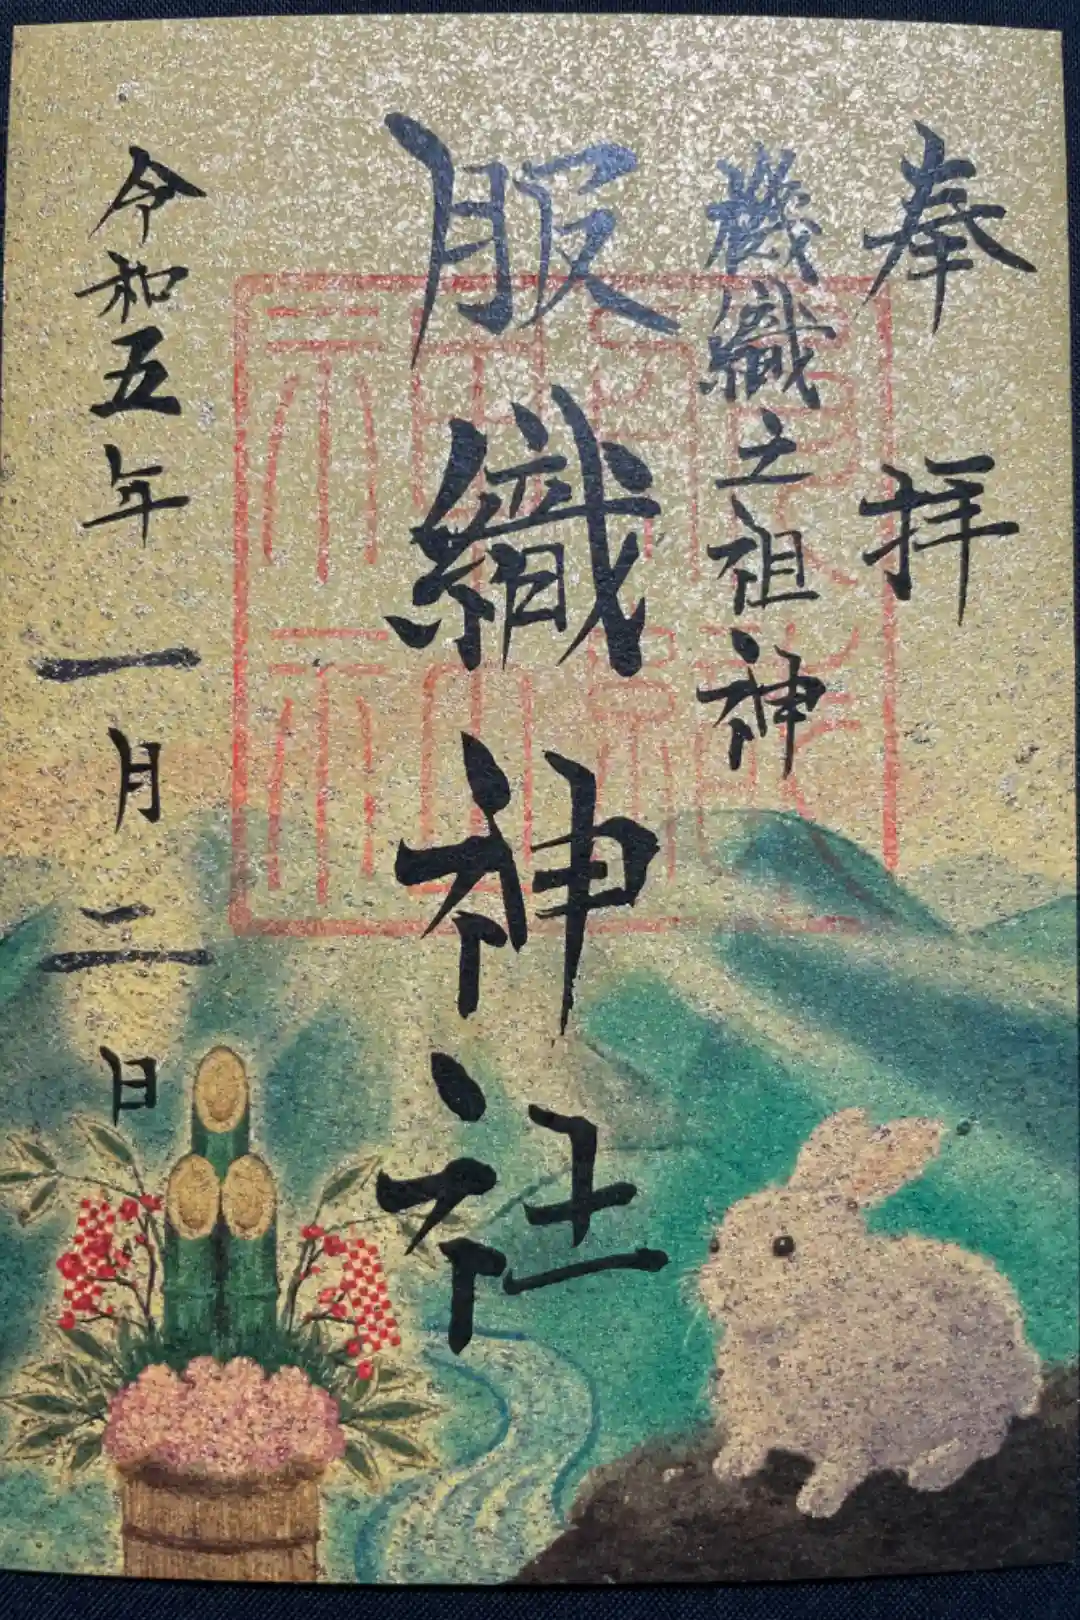 奉拝
機織之祖神
服織神社
令和五年一月二日